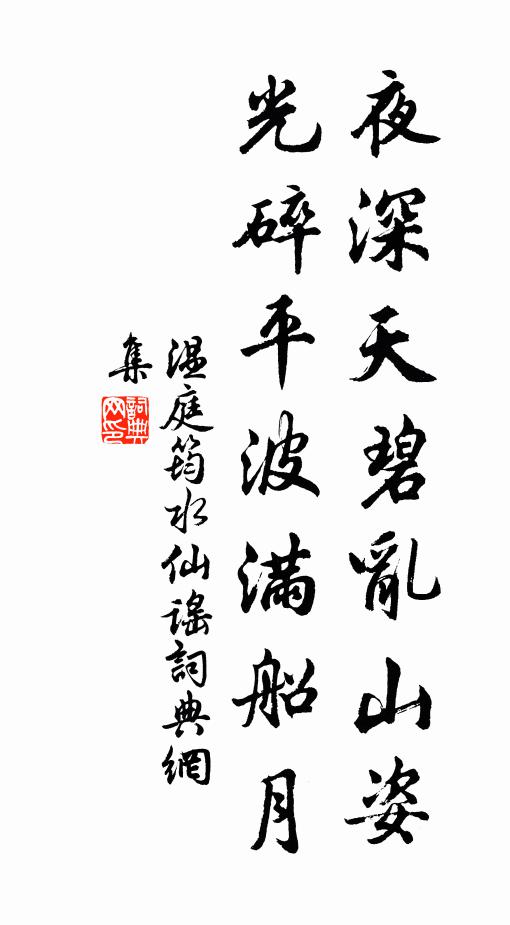 夜深天碧亂山姿
光碎平波滿船月
温庭筠水仙謠詞典網
集
詞典
网印